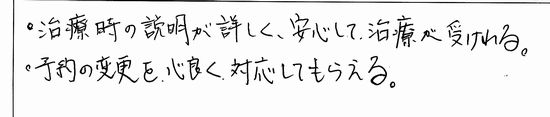 ・治療時の説明が詳しく、安心して、治療が受けれる。
・予約の変更を、心良く対応してもらえる。